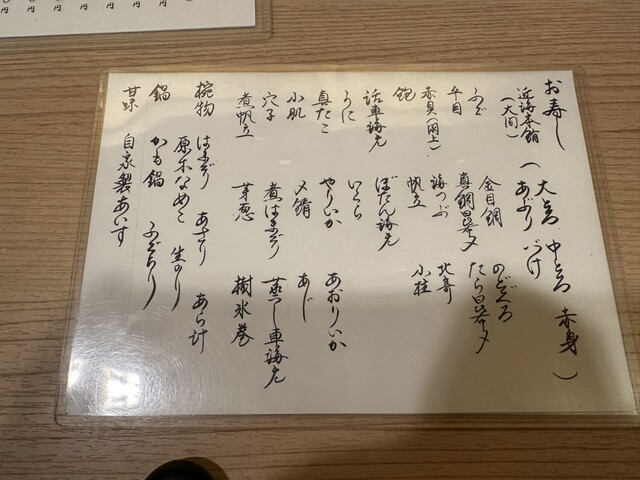 お寿し
近海本鮪（大トロ 中トロ 赤身
（大間） あぶり づけ ）
ふぐ 金目鯛 のどぐろ
平目 真鯛昆布〆 たら昆布〆
赤貝（閖上） 海つぶ 北寄
鮑 帆立 小柱
活車海老 ぼたん海老
うに いくら
真たこ やりいか あおりいか
小肌 〆鯖 あじ
穴子 煮はまぐり 蒸し車海老
煮帆立 芽葱 樹氷巻
椀物 はまぐり あさり あら汁
原木なめこ 生のり
鍋 かも鍋 ふぐちり
甘味 自家製あいす
円 円 円 円 円 円